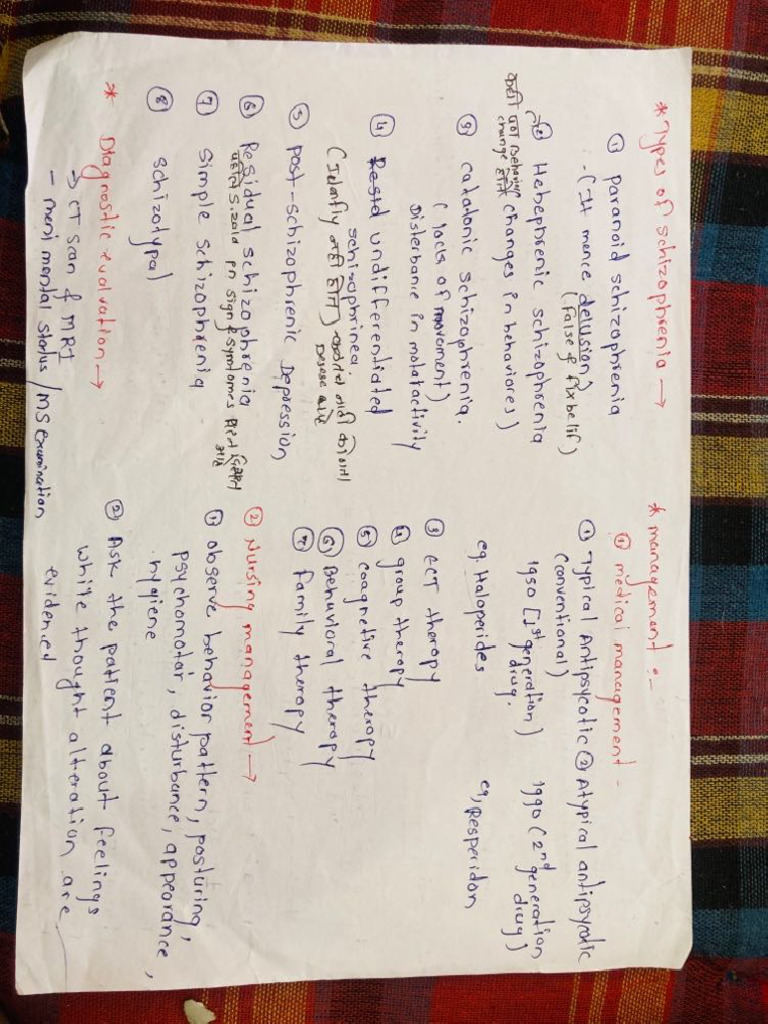 * Types of schizophrenia →
① paranoid schizophrenia
- (It mence delusion)
(false & fix belif)
② Hebephrenic schizophrenia
(changes in behaviores)
कधी पण Behavior
change होते
③ catatonic schizophrenia.
(lacts of movement)
Disterbance in motatactivity
④ Restd undifferentiated
schizophrinea
(Identify नाही होत)
⑤ post-schizophrenic Depression
⑥ Residual schizophrenia
पहिले S.zoia pn sign & symtomes
⑦ simple schizophrenia
⑧ schizotypal
* Diagnostic evalvation →
→ CT scan & MRI
- meni mental status / MS examination
* management :-
① medical management -
① Typical Antipsycotic
(conventional)
1950 [1st generation)
drug.
eg. Haloperides
② Atypical antipsycotic
1990 (2nd generation
drug)
eg, Resperidon
③ ECT therapy
④ group therapy
⑤ coagnetive therapy
⑥ Behavioral therapy
⑦ family therapy
② Nursing management →
① observe behavior pattern, posturing,
psychomotar, disturbance, appearance,
hygiene
② Ask the patient about feelings
while thought alteration are
evidenced